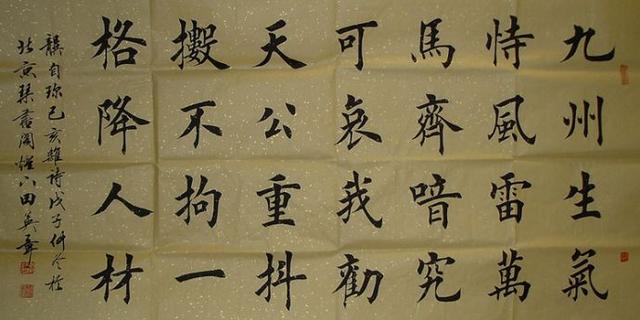 九州生氣
恃風雷萬
馬齊喑究
可哀我勸
天公重抖
擻不拘一
格降人材
龔自珍己亥雜詩戊子仲冬於
北京琴書閣燈下田英章